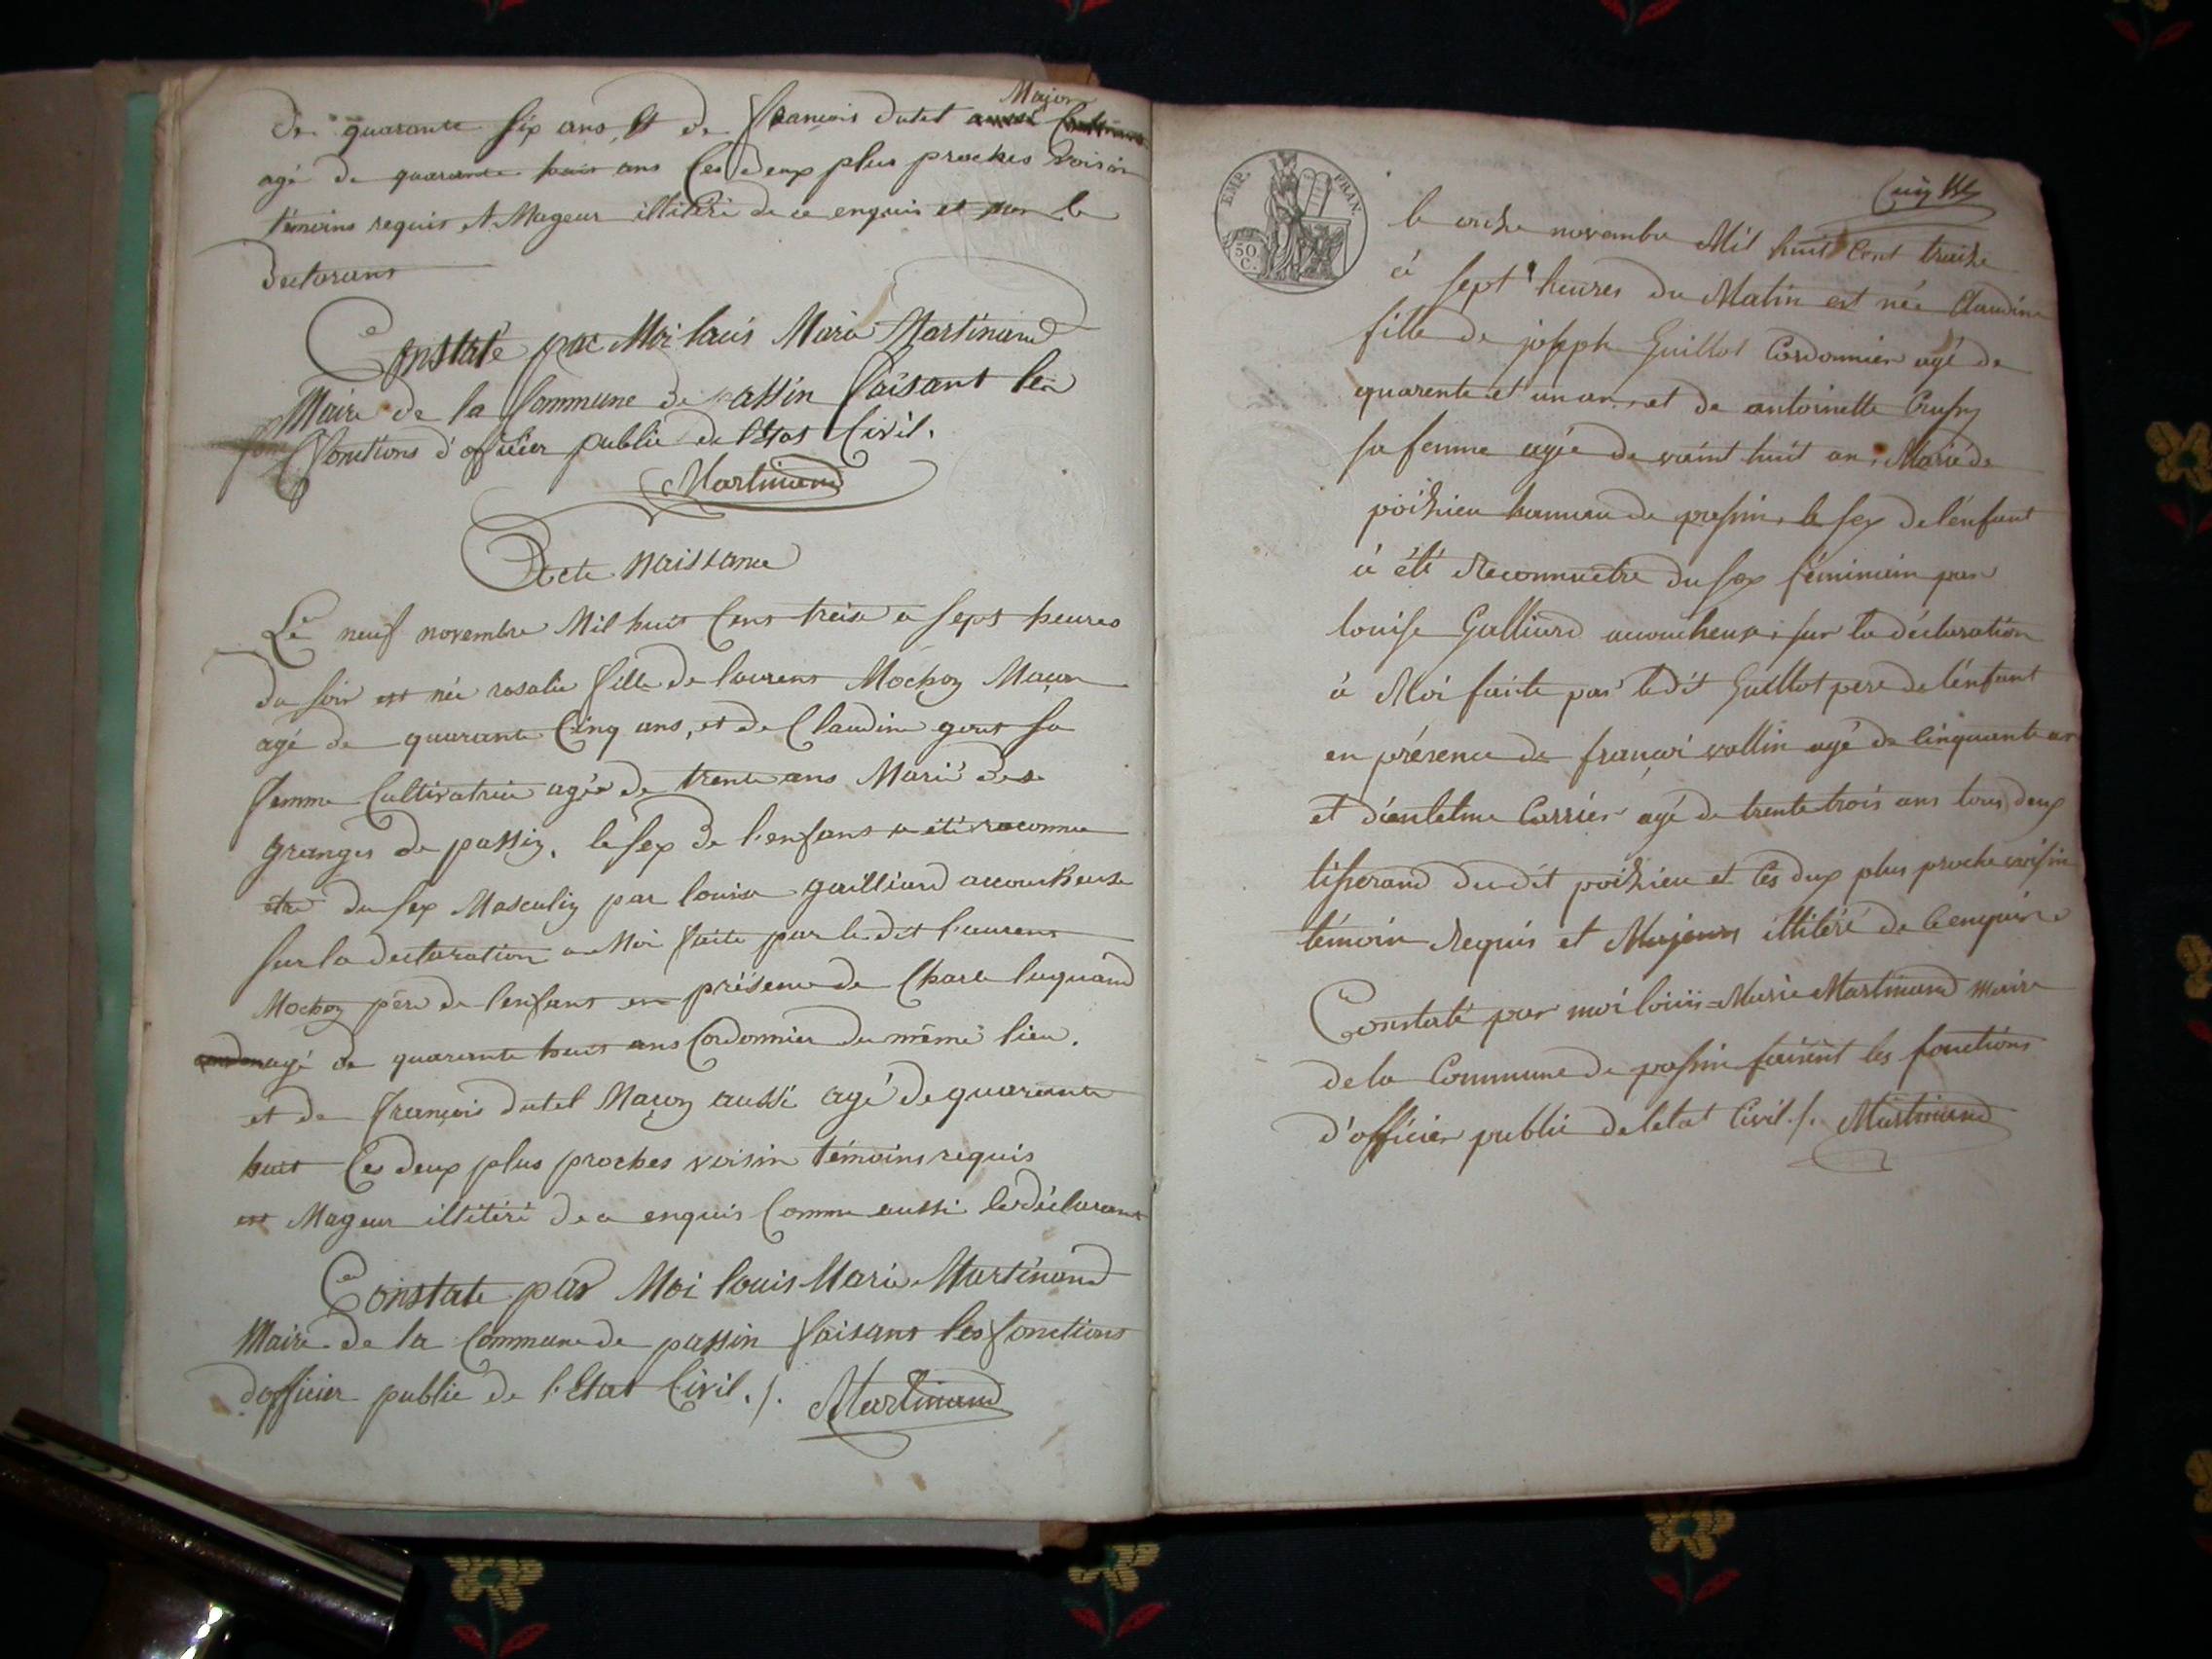 de quarante six ans et de francois dutel Maçon
agé de quarante huit ans les deux plus proches voisin
témoins requis et Mageur illitéré de ce enquis et non le
declarans
Constaté par Moi louis Marie Martinand
Maire de la Commune de passin faisant les
fonctions d'officier public de l'Etat Civil.
Martinand
Acte naissance
Le neuf novembre Mil huit Cens treise a sept heures
du soir est née rosalie fille de laurens Mochon Maçon
agé de quarante Cinq ans, et de Claudine gout sa
femme Cultivatrice agée de trente ans Marié des
granges de passin, le sex de l'enfans a été reconnu
etre du sex Masculin par louise gailliard accoucheuse
sur la declaration a Moi faite par le dit laurens
Mochon père de l'enfans en présence de Charle luquand
agé de quarante huit ans Cordonnier du même lieu.
et de françois dutel Maçon aussi agé de quarante
huit les deux plus proches voisin témoins requis
et Mageur illitéré de ce enquis Comme aussi le déclarans
Constaté par Moi louis Marie Martinand
Maire de la Commune de passin faisans les fonctions
d'officier public de l'Etat Civil ./. Martinand
EMP. FRAN.
50 C.
le onze novembre Mil huit Cent treize
à sept heures du Matin est née Claudine
fille de joseph Guillot Cordonnier agé de
quarente et un an, et de antoinette
sa femme agée de vaint huit an, Marié de
poizieu hammau de passin, le sex de l'enfant
à été Reconnuetre du sex féminin par
louise Galliard accoucheuse, sur la déclaration
à Moi faite par le dit Guillot pere de l'énfant
en présence de françoi vallin agé de Cinquante an
et d'antelme Carrier agé de trente trois ans tous deux
tisserand du dit poizieu et les dux plus proche voisin
témoin Requis et Majeurs illitéré de Ce enquire
Constaté par moi loiiis-Marie Martinand maire
de la Commune de passin faisent les fonctions
d'officier public de letat Civil ./. Martinand